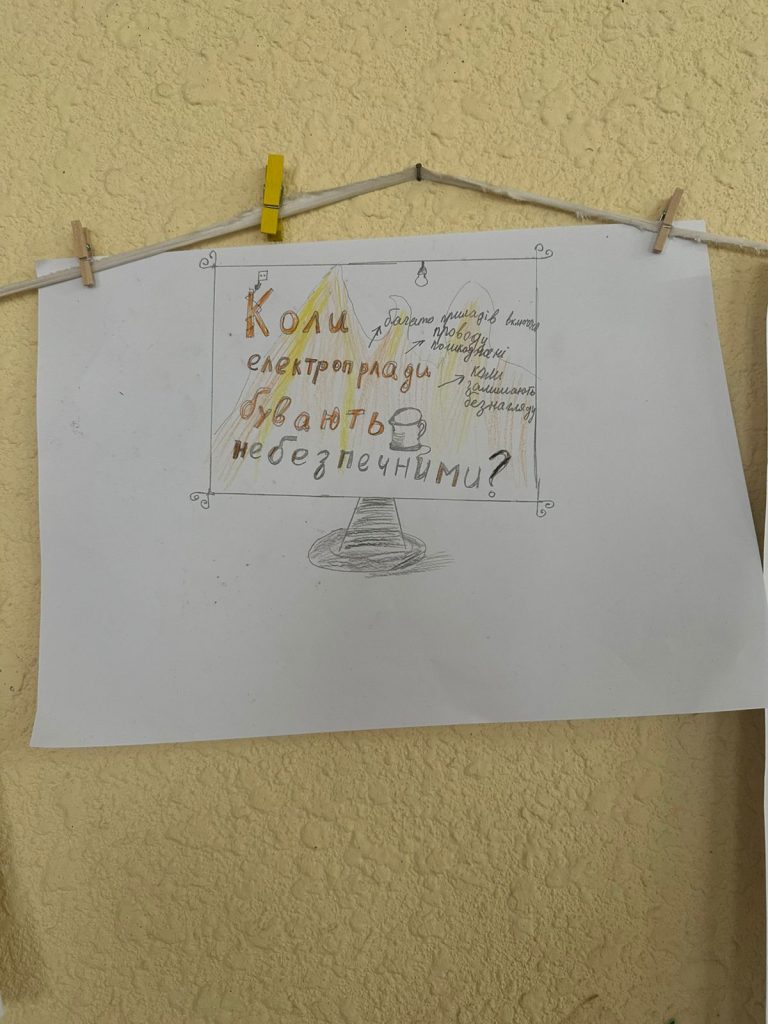 Коли
електропрлади
бувають
небезпечними?
багато приладів включ
проводу
пошкоджені
коли
залишають
безнагляду